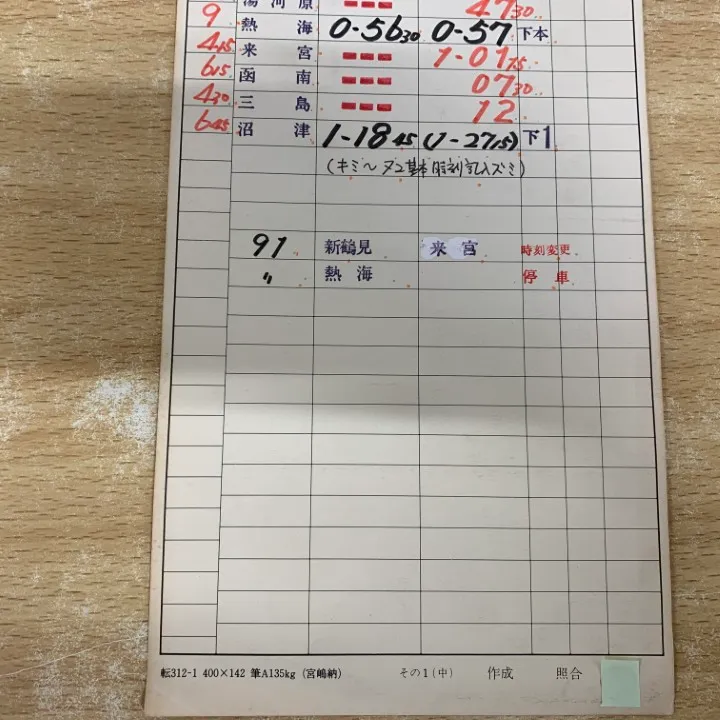 湯河原 47 30
9
熱海 0-56 30 0-57 下本
4 15
来宮 1-01 15
6 15
函南 07 30
4 30
三島 12
6 45
沼津 1-18 45 (1-27 15) 下1
(キミ〜ヌコ基本時刻記入ズミ)
91 新鶴見 来宮 時刻変更
〃 熱海 停車
転312-1 400×142 筆A135kg (宮嶋納) その1(中) 作成 照合